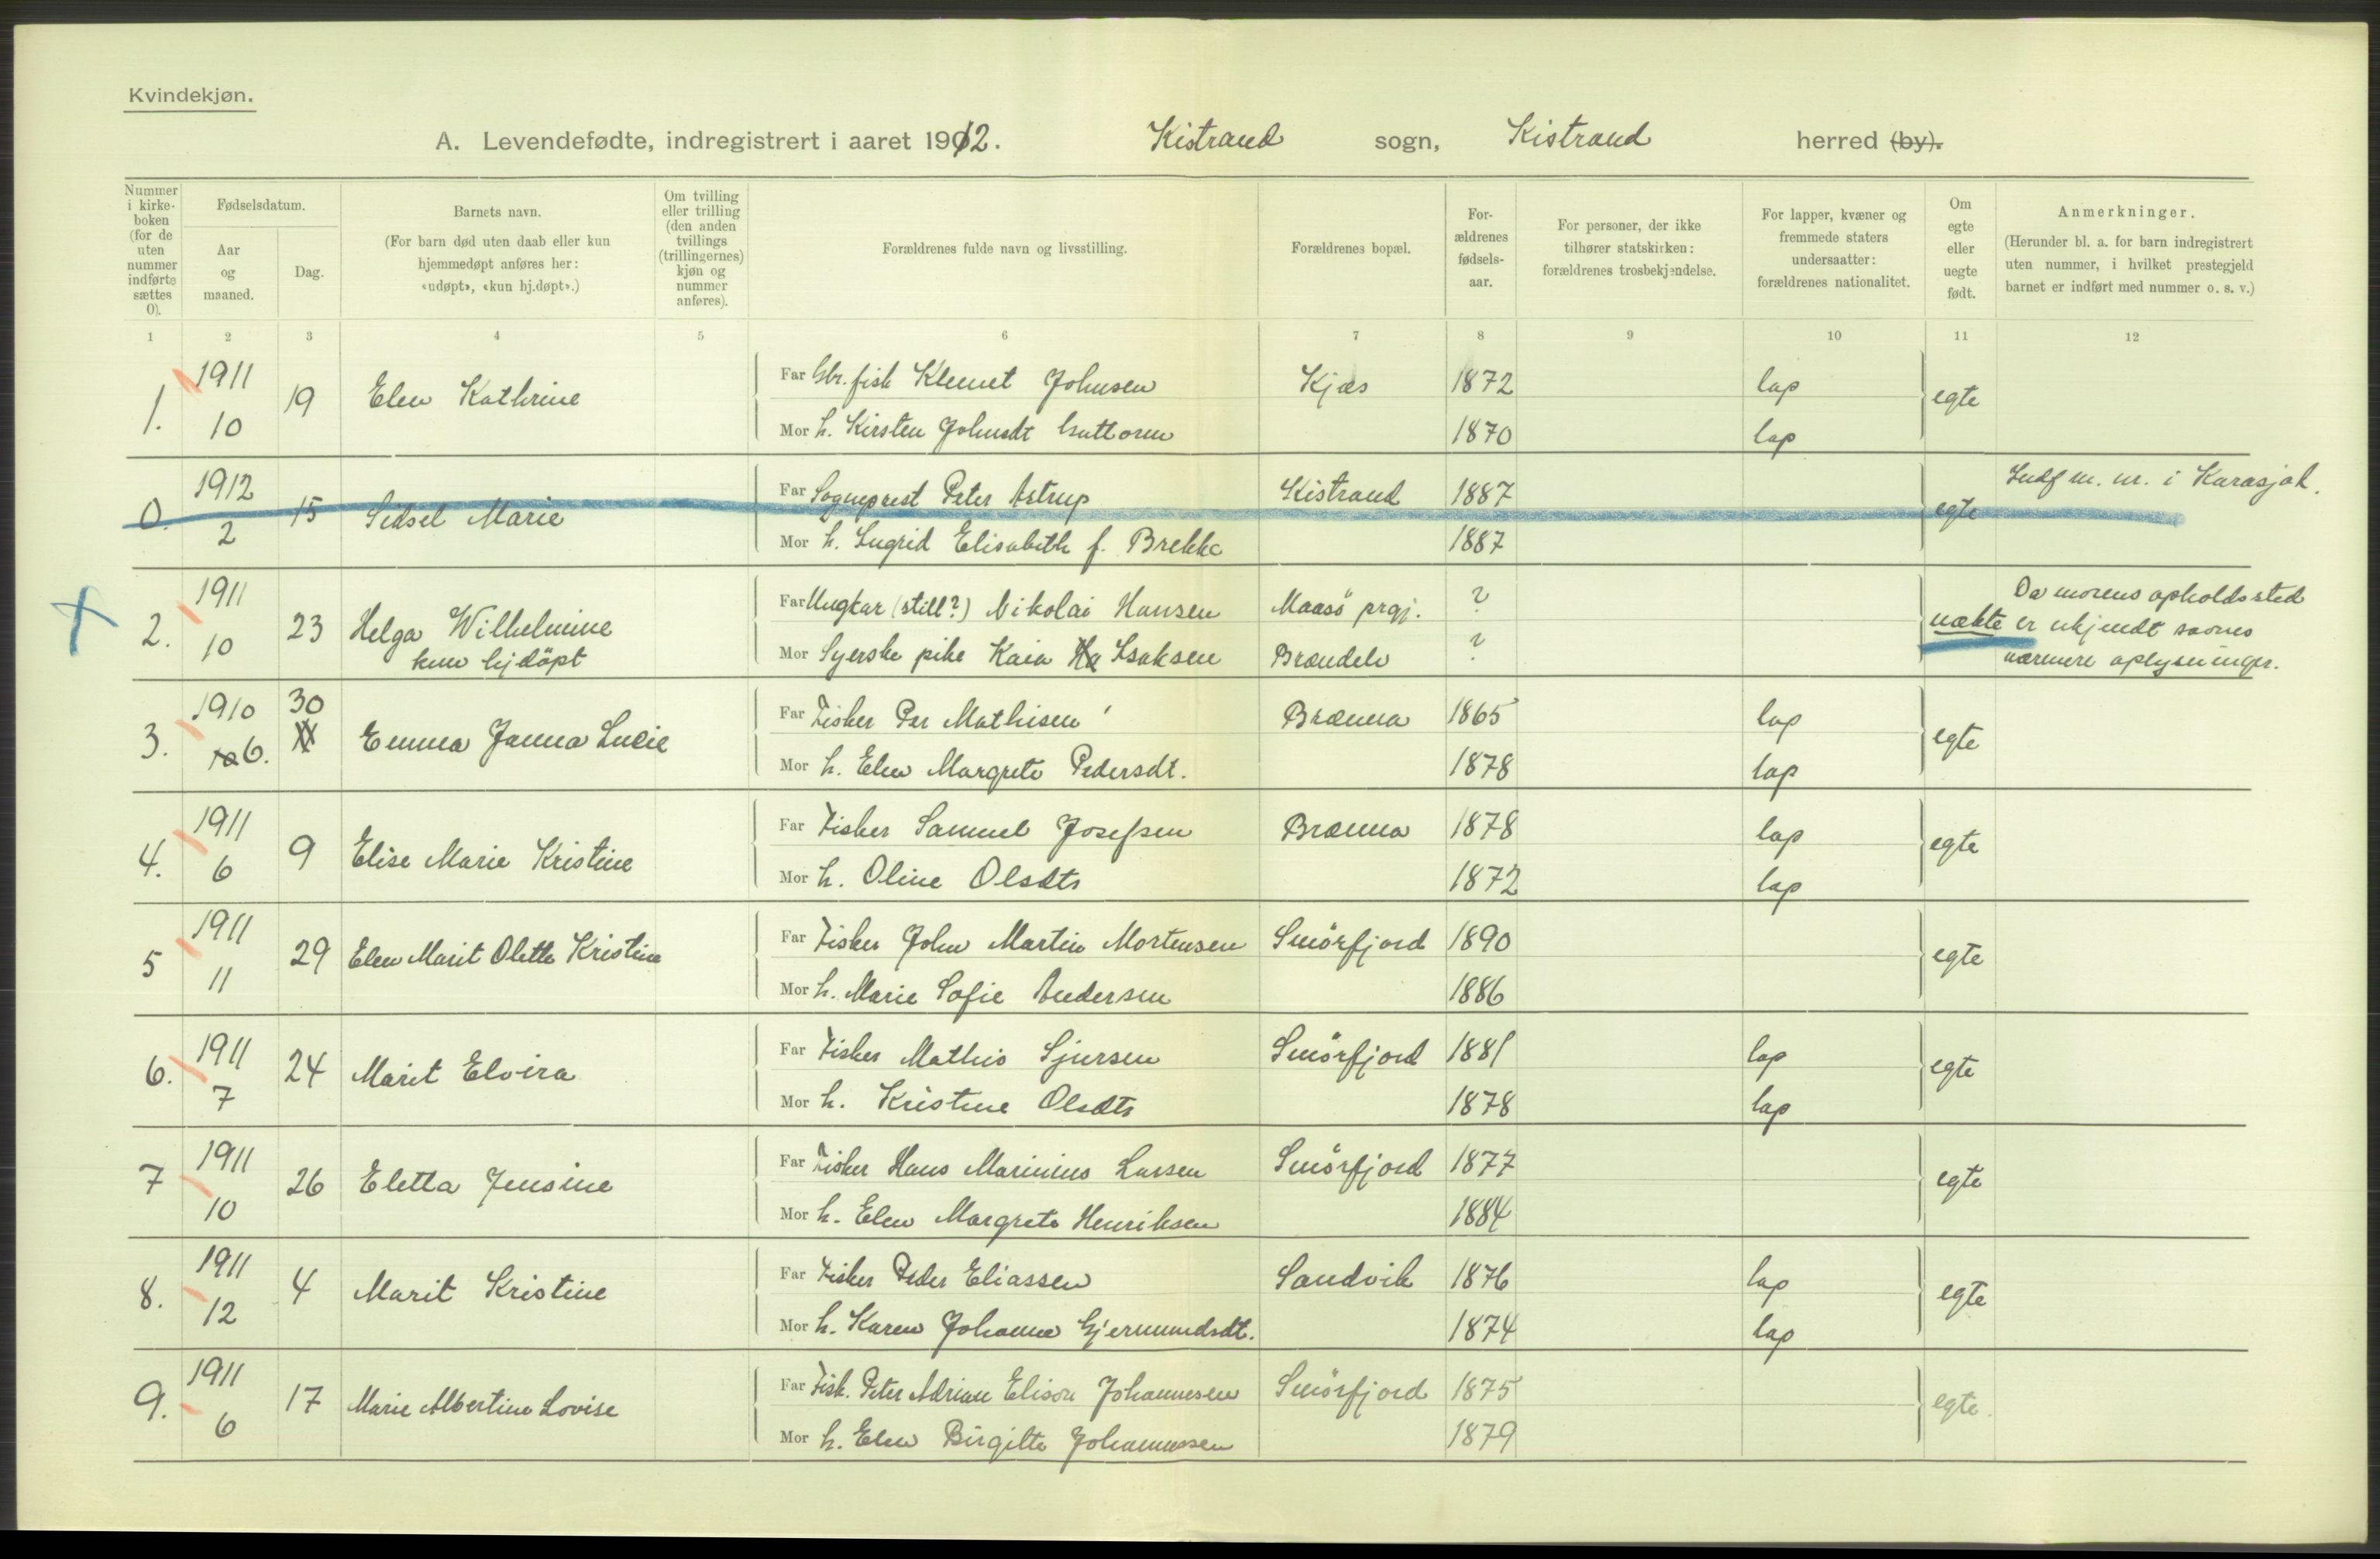 Kvindekjøn.
A. Levendefødte, indregistrert i aaret 1912. Kistrand sogn, Kistrand herred (by).
Nummer i kirke-boken (for de uten nummer indførte sættes 0).
Fødselsdatum.
Aar og maaned.
Dag.
Barnets navn.
(For barn død uten daab eller kun hjemmedøpt anføres her: «udøpt», «kun hj.døpt».)
Om tvilling eller trilling (den anden tvillings (trillingernes) kjøn og nummer anføres).
Forældrenes fulde navn og livsstilling.
Forældrenes bopæl.
For-ældrenes fødsels-aar.
For personer, der ikke tilhører statskirken: forældrenes trosbekjendelse.
For lapper, kvæner og fremmede staters undersaatter: forældrenes nationalitet.
Om egte eller uegte født.
Anmerkninger.
(Herunder bl. a. for barn indregistrert uten nummer, i hvilket prestegjeld barnet er indført med nummer o. s. v.)
1 2 3 4 5 6 7 8 9 10 11 12
1. 1911 10 19 Elen Kathrine
Far Gbr. fisk Klemet Johnsen Kjæs 1872 lap egte
Mor h. Kirsten Johnsdt Guttorm 1870 lap
0. 1912 2 15 Sidsel Marie
Far Sogneprest Peter Astrup Kistrand 1887 egte Indf m. nr. i Karasjok.
Mor h. Ingrid Elisabeth f. Brekke 1887
2. 1911 10 23 Helga Wilhelmine
kun hjdöpt
Far Ungkar (still?) Nikolai Hansen Maasö prgj. ? uekte
Mor Syerske pike Kaia Isaksen Brændelv ?
Da morens opholdssted
er ukjendt savnes
nærmere oplysninger.
3. 1910 6. 30 Emma Janna Lucie
Far Fisker Per Mathisen Brænna 1865 lap egte
Mor h. Elen Margrete Pedersdt. 1878 lap
4. 1911 6 9 Elise Marie Kristine
Far Fisker Samuel Josefsen Brænna 1878 lap egte
Mor h. Oline Olsdtr 1872 lap
5 1911 11 29 Elen Marit Olette Kristine
Far Fisker John Martin Mortensen Smörfjord 1890 egte
Mor h. Marie Sofie Andersen 1886
6. 1911 7 24 Marit Elvira
Far Fisker Mathis Sjursen Smörfjord 1881 lap egte
Mor h. Kristine Olsdtr 1878 lap
7 1911 10 26 Eletta Jensine
Far Fisker Hans Marinius Larsen Smörfjord 1877 egte
Mor h. Elen Margrete Henriksen 1884
8. 1911 12 4 Marit Kristine
Far Fisker Peder Eliassen Sandvik 1876 lap egte
Mor h. Karen Johanne Gjermundsdt. 1874 lap
9. 1911 6 17 Marie Albertine Lovise
Far Fisk. Peter Adrian Elison Johannesen Smörfjord 1875 egte.
Mor h. Elen Birgitte Johannessen 1879